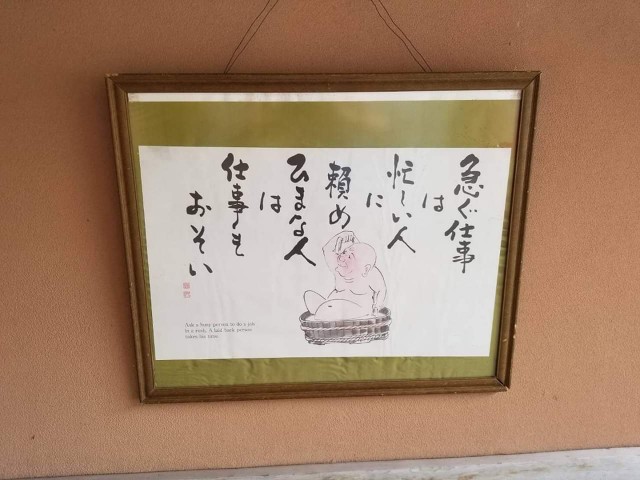 急ぐ仕事
は
忙しい人
に
頼め
ひまな人
は
仕事も
おそい
Ask a busy person to do a job
in a rush. A laid back person
takes his time.